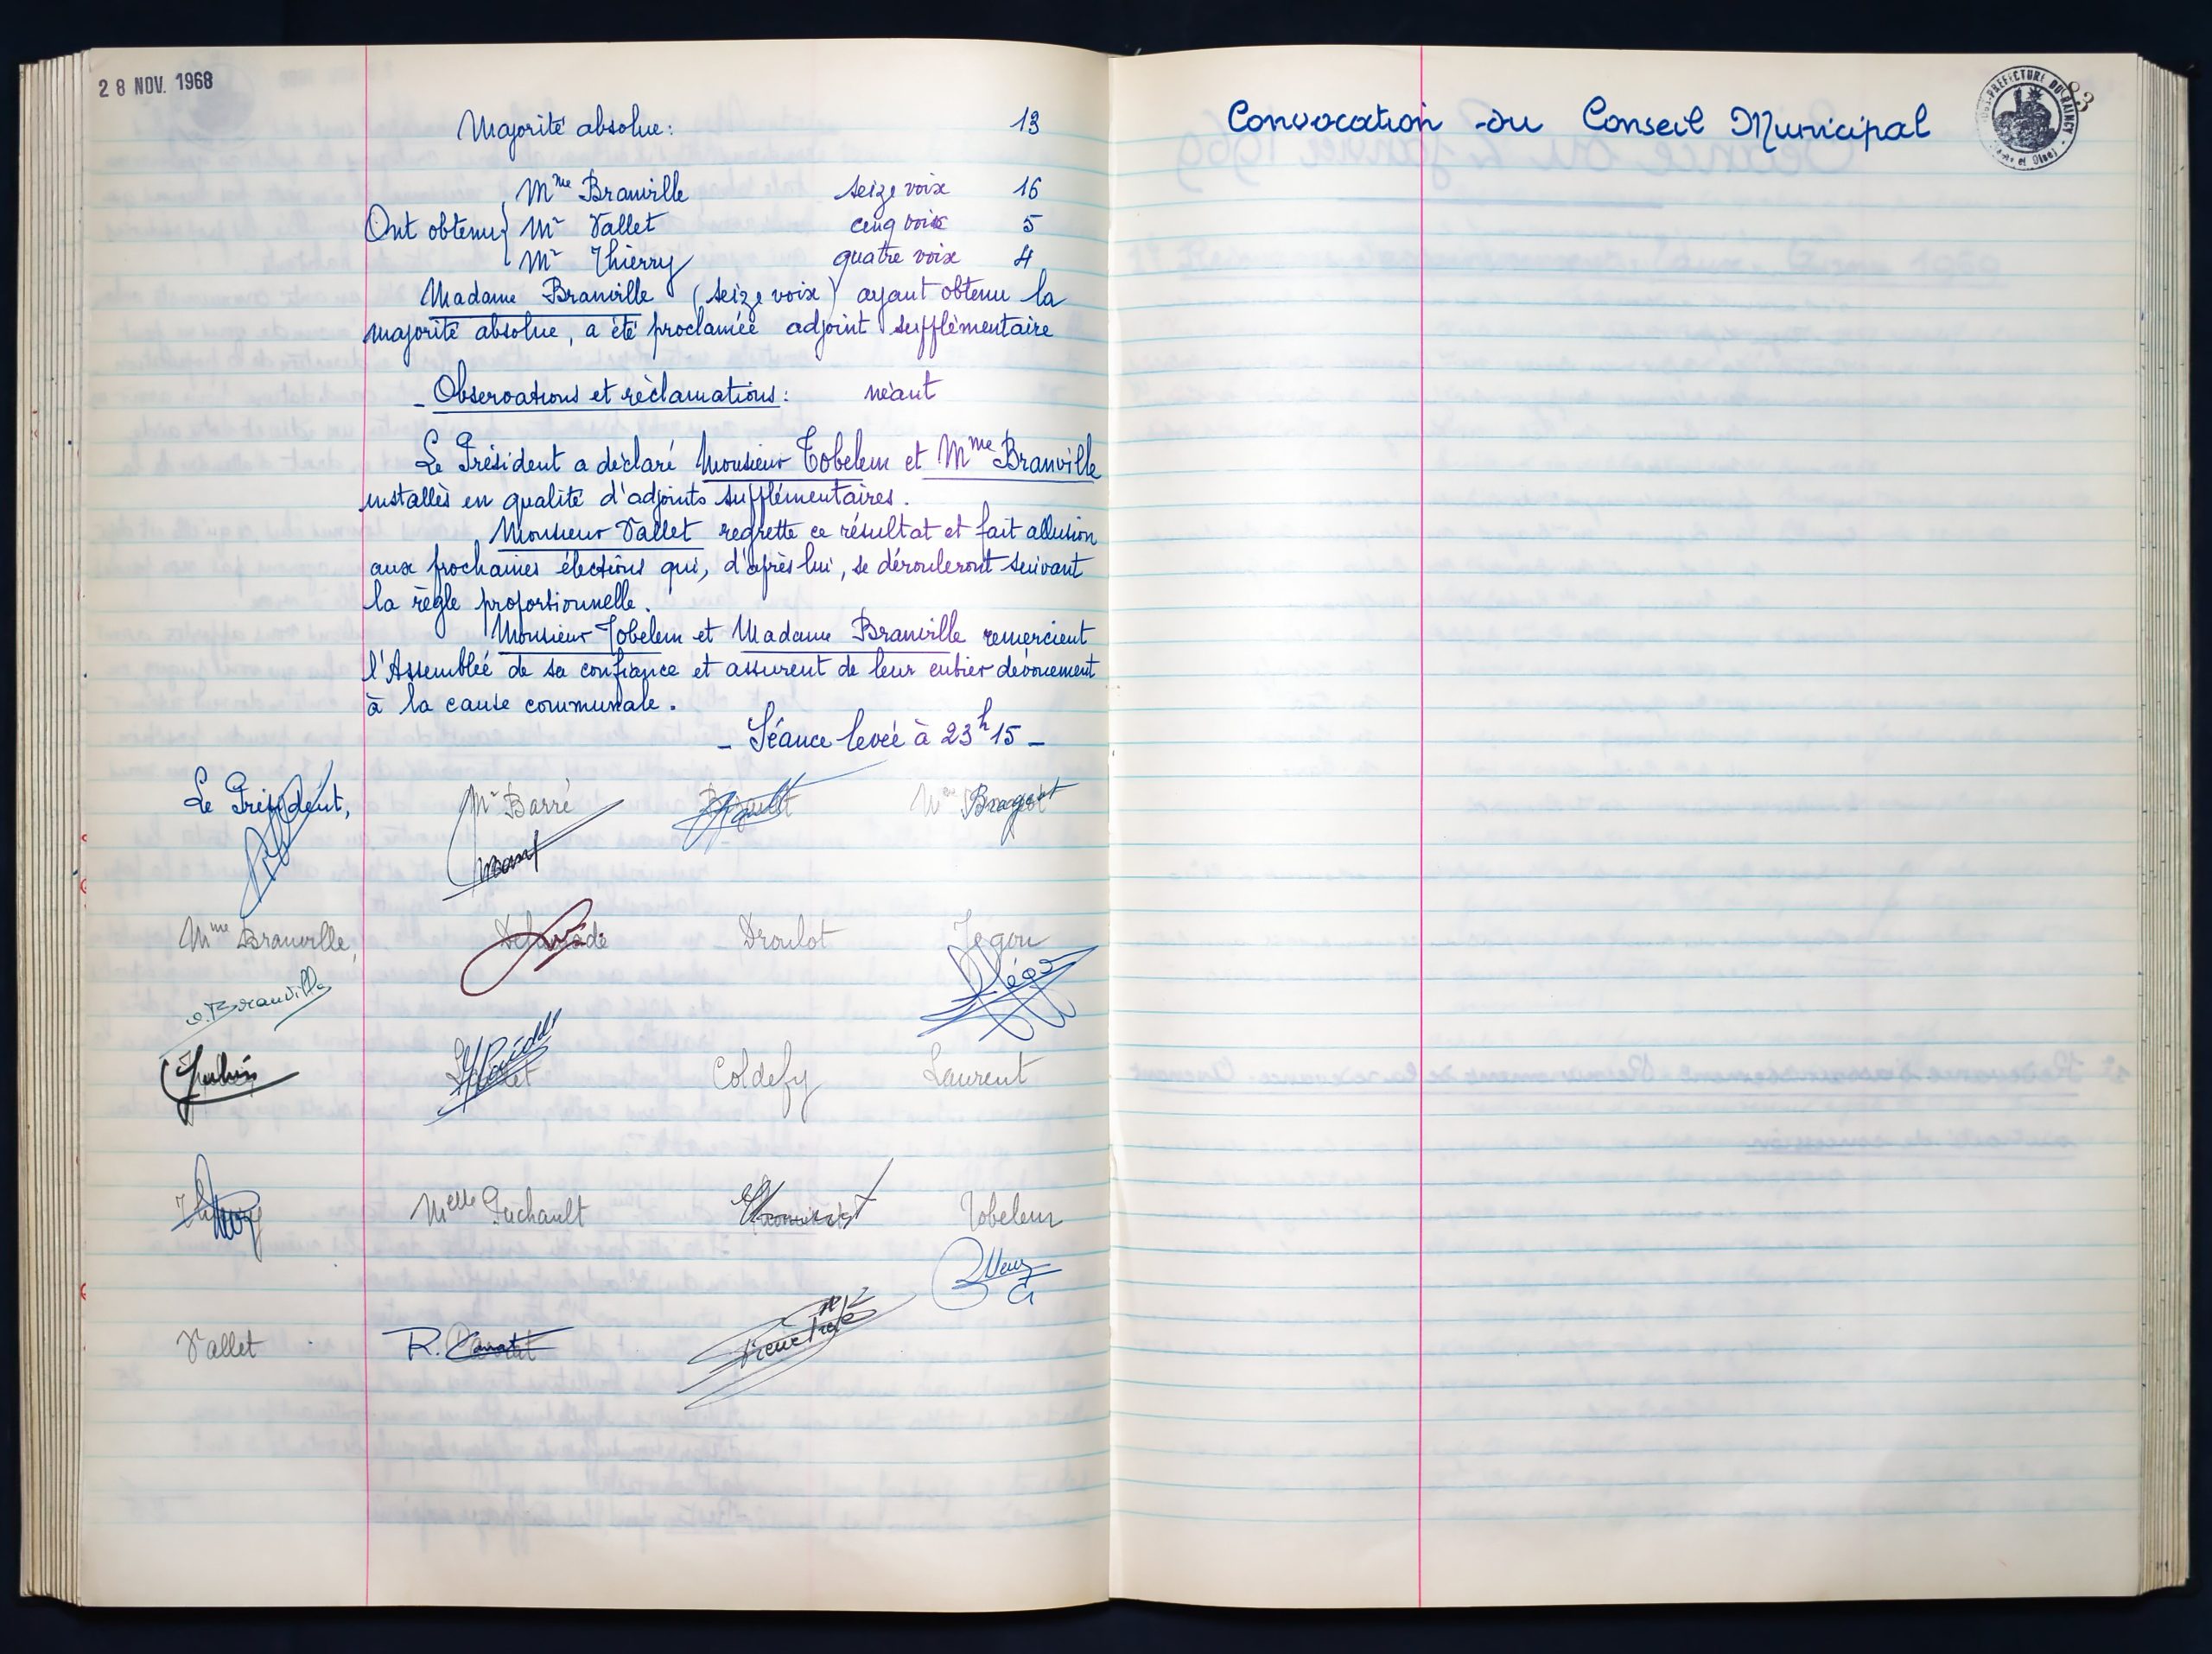 28 NOV. 1968
Majorité absolue: 13
Mme Branville seize voix 16
Ont obtenu Mr Vallet cinq voix 5
Mr Thierry quatre voix 4
Madame Branville (seize voix) ayant obtenu la
majorité absolue, a été proclamée adjoint supplémentaire
- Observations et réclamations: néant
Le Président a déclaré Monsieur Tobelem et Mme Branville
installés en qualité d'adjoints supplémentaires.
Monsieur Vallet regrette ce résultat et fait allusion
aux prochaines élections qui, d'après lui, se dérouleront suivant
la règle proportionnelle.
Monsieur Tobelem et Madame Branville remercient
l'Assemblée de sa confiance et assurent de leur entier dévouement
à la cause communale.
- Séance levée à 23h15 -
Le Président,
Mr Barré
Mme Bragert
Mme Branville,
Delamade
Droulot
Jégou
Branville
Coldefy
Laurent
Thierry
Melle Guchault
Tobelem
Vallet
R. Canat
Convocation du Conseil Municipal
83
SOUS-PRÉFECTURE DU RAINCY
(Seine et Oise)